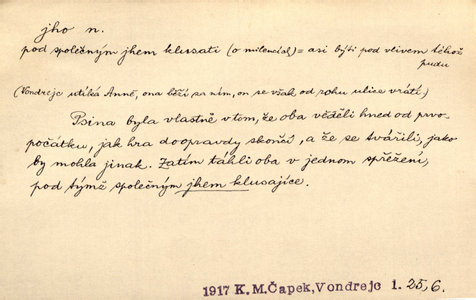 jho n.
pod společným jhem klusati (o milencích) = asi býti pod vlivem téhož
pudu
(Vondrejc utíká Anně, ona běží za ním, on se však od rohu ulice vrátí)
Psina byla vlastně v tom, že oba věděli hned od prvo-
počátku, jak hra doopravdy skončí, a že se tvářili, jako
by mohla jinak. Zatím táhli oba v jednom spřežení,
pod týmž společným jhem klusajíce.
1917 K.M.Čapek,Vondrejc 1. 25,6.